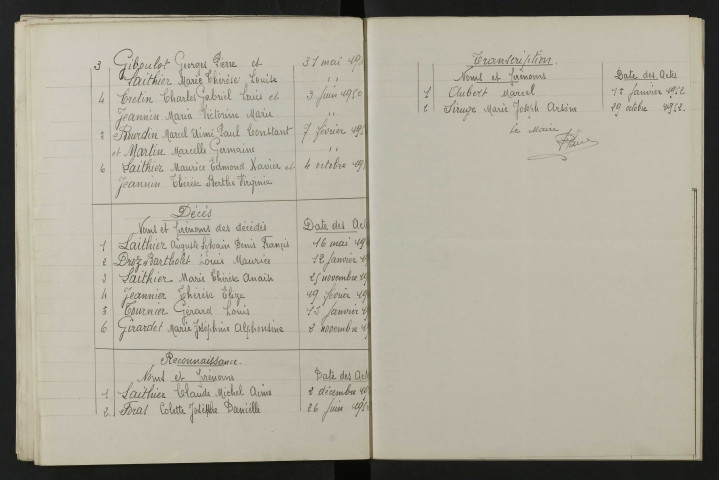 3 Giboulot Georges Pierre et 31 mai
Laithier Marie Thérèse Louise "
4 Cretin Charles Gabriel Louis et 3 juin 1950
Jeannin Maria Victorine Marie "
2 Bourdin Marcel Aimé Paul Constant 7 février
et Martin Marcelle Germaine "
6 Laithier Maurice Edmond Xavier et 4 octobre
Jeannin Thérèse Berthe Virginie
Décès
Noms et Prénoms des décédés Date des Act
1 Laithier Auguste Sylvain Denis François 16 mai
2 Droz Bartholet Louis Maurice 12 janvier
3 Laithier Marie Thérèse Anaïs 25 novembre
4 Jeannier Thérèse Elize 19 février
5 Tournier Gérard Louis janvier
6 Girardet Marie Joséphine Alphonsine 2 novembre
Reconnaissance.
Noms et Prénoms Date des Act
1 Laithier Claude Michel Aimé 2 décembre
2 Foras Colette Josèphe Danielle 26 juin
Transcription.
Noms et Prénoms Date des Actes
1 Aubert Marcel 15 janvier 1952
2 Siruge Marie Joseph Arsène 29 octobre 1952.
Le Maire